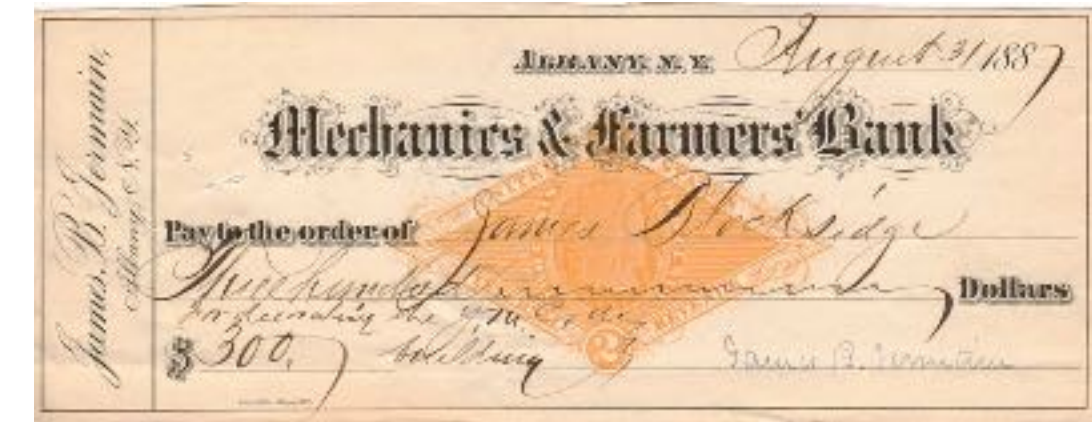 James. B. Jermain,
Albany, N.Y.
ALBANY. N. Y. August 31 1887
Mechanics & Farmers' Bank
Pay to the order of James Blocksidge
Three hundred Dollars
for decorating the Y.M.C.A.
$ 300. building
James B. Jermain